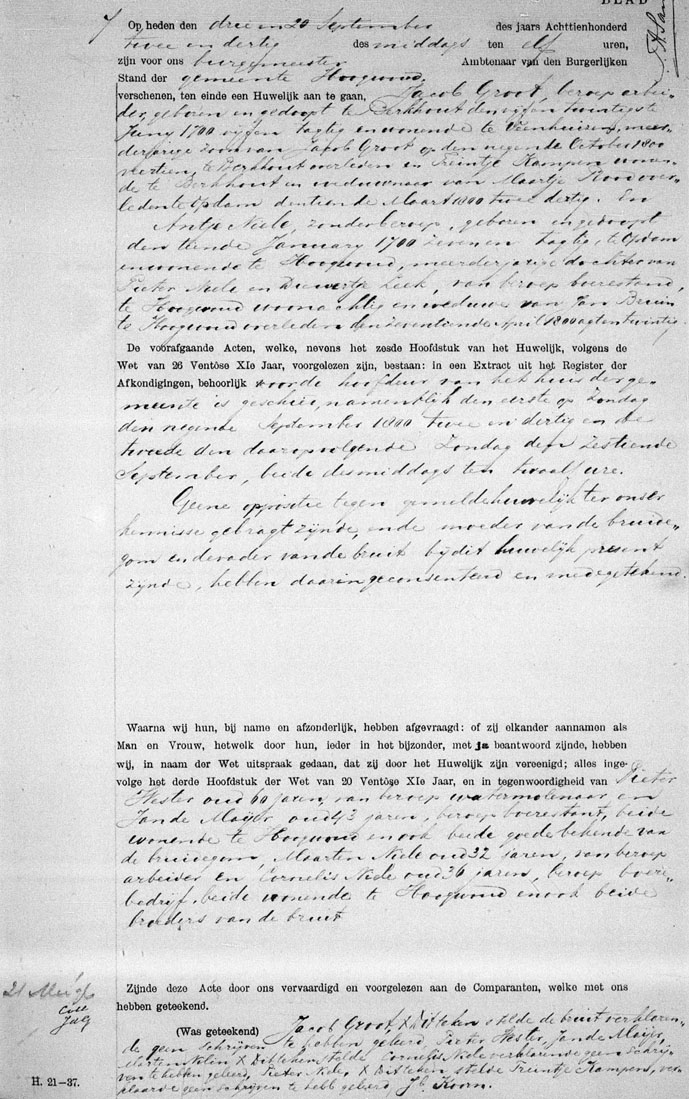 BLAD
7
Op heden den drie en 20 September des jaars Achttienhonderd
twee en dertig des middags ten elf uren,
zijn voor ons burgemeester Ambtenaar van den Burgerlijken
Stand der gemeente Hoogwoud.
verschenen, ten einde een Huwelijk aan te gaan, Jacob Groot, beroep arbei-
der, geboren en gedoopt te Berkhout den vijf en twintigste
Juny 1700 vijf en tagtig en wonende te Veenhuizen, meer-
derjarige zoon van Jacob Groot op den negende October 1800
veertien, te Berkhout overleden en Trintje Kampen wonen-
de te Berkhout en weduwenaar van Maartje Koos over-
leden te Opdam den tiende Maart 1800 twee dertig. En
Antje Niele, zonder beroep, geboren en gedoopt
den tiende January 1700 zeven en tagtig, te Opdam
en wonende te Hoogwoud, meerderjarige dochter van
Pieter Niele en Diewertje Leek, van beroep boerestand,
te Hoogwoud woonachtig en weduwe van Jan Bruin
te Hoogwoud overleden den zeventiende April 1800 agt en twintig.
De voorafgaande Acten, welke, nevens het zesde Hoofdstuk van het Huwelijk, volgens de
Wet van 26 Ventôse XIe Jaar, voorgelezen zijn, bestaan: in een Extract uit het Register der
Afkondigingen, behoorlijk voor de hoofdeur van het huis der ge-
meente is geschiet, namentlik den eerste op Zondag
den negende September 1800 twee en dertig en de
tweede den daaropvolgende Zondag den zestiende
September, beide desmiddags ten twaalf ure.
Geene oppositie tegen gemelde huwelijk ter onser
kennisse gebragt zijnde, ende moeder van de bruide-
gom en de vader van de bruit bij dit huwelijk present
zijnde, hebben daarin geconsenteerd en medegetekend.
Waarna wij hun, bij name en afzonderlijk, hebben afgevraagd: of zij elkander aannamen als
Man en Vrouw, hetwelk door hun, ieder in het bijzonder, met ja beantwoord zijnde, hebben
wij, in naam der Wet uitspraak gedaan, dat zij door het Huwelijk zijn vereenigd; alles inge-
volge het derde Hoofdstuk der Wet van 20 Ventôse XIe Jaar, en in tegenwoordigheid van Pieter
oud 60 jaren, van beroep watermolenaar en
Jan de Maijer oud 43 jaren, beroep boerestant, beide
wonende te Hoogwoud en ook beide goede bekende van
de bruidegom, Maarten Niele oud 32 jaren, van beroep
arbeider en Cornelis Niele oud 36 jaren, beroep boere-
bedrijf, beide wonende te Hoogwoud en ook beide
broeders van de bruit
21 Mei
Zijnde deze Acte door ons vervaardigd en voorgelezen aan de Comparanten, welke met ons
hebben geteekend.
(Was geteekend) Jacob Groot, X Dit teken stelde de bruit verklaren-
de geen schrijven te hebben geleerd, Pieter Jan de Maijer,
X Dit teken stelde Cornelis Niele verklarende geen schrij-
ven te hebben geleerd, Pieter Niele, X Dit teken stelde Trintje Kampens, ver-
klaarde geen schrijven te hebb geleerd, Jb. Koorn.
H. 21—37.